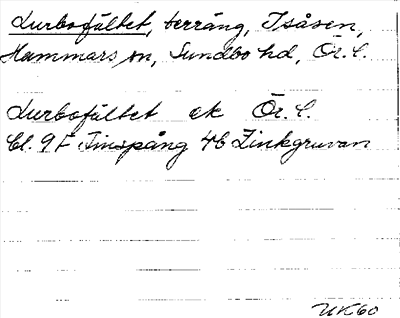 Lurbofältet, terräng, Isåsen,
Hammars sn, Sundbo hd, Ör. l.
Lurbofältet ek Ör. l.
Bl. 9 F Finspång 4b Zinkgruvan
UK60